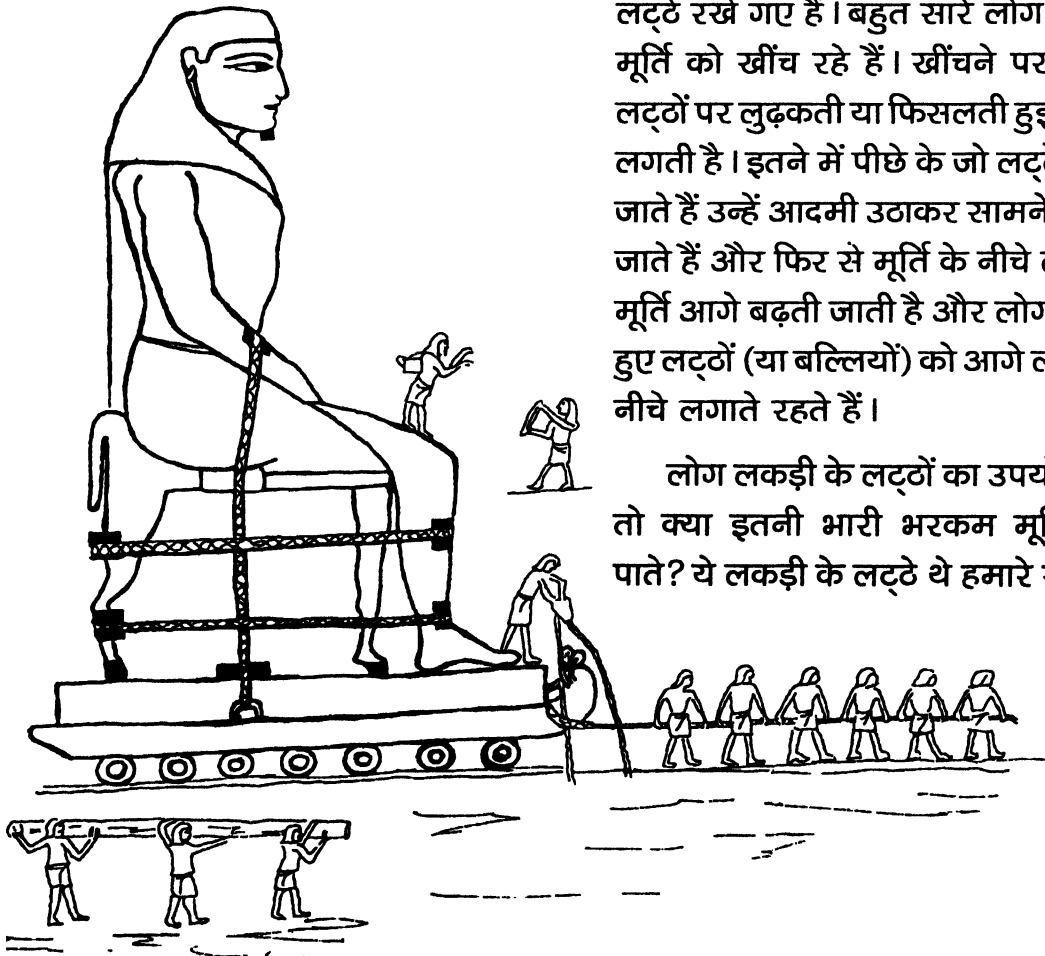 लट्ठे रखे गए हैं। बहुत सारे लोग
मूर्ति को खींच रहे हैं। खींचने पर
लट्ठों पर लुढ़कती या फिसलती
लगती है। इतने में पीछे के जो
जाते हैं उन्हें आदमी उठाकर सामने
जाते हैं और फिर से मूर्ति के नीचे
मूर्ति आगे बढ़ती जाती है और लोग
हुए लट्ठों (या बल्लियों) को आगे
नीचे लगाते रहते हैं।
लोग लकड़ी के लट्ठों का
तो क्या इतनी भारी भरकम
पाते? ये लकड़ी के लट्ठे थे हमारे